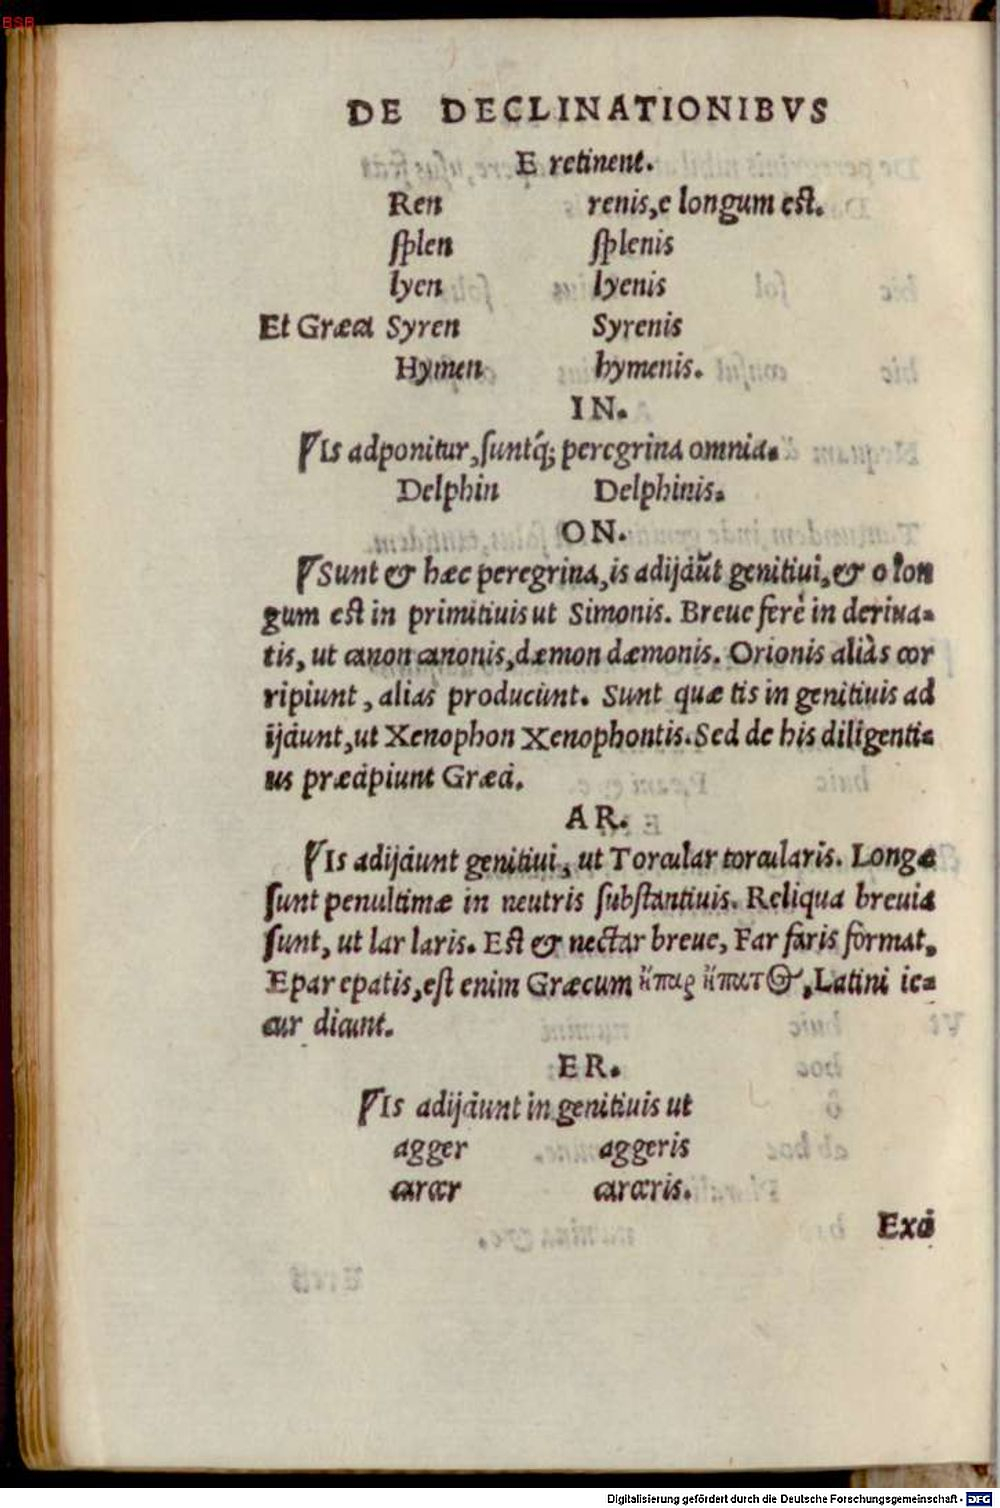 BSB
DE DECLINATIONIBVS
E retinent.
Ren renis, e longum est.
splen splenis
lyen lyenis
Et Græca Syren Syrenis
Hymen hymenis.
IN.
Is adponitur, suntq́; peregrina omnia.
Delphin Delphinis.
ON.
Sunt & hæc peregrina, is adijciūt genitiui, & o lon
gum est in primitiuis ut Simonis. Breue ferè in deriua-
tis, ut canon canonis, dæmon dæmonis. Orionis aliàs cor
ripiunt, alias producunt. Sunt quæ tis in genitiuis ad
ijciunt, ut Xenophon Xenophontis. Sed de his diligenti-
us præcipiunt Græci.
AR.
Is adijciunt genitiui, ut Torcular torcularis. Longæ
sunt penultimæ in neutris substantiuis. Reliqua breuia
sunt, ut lar laris. Est & nectar breue, Far faris format,
Epar epatis, est enim Græcum ἥπαρ ἥπατος, Latini ie-
cur dicunt.
ER.
Is adijciunt in genitiuis ut
agger aggeris
carcer carceris.
Exci
Digitalisierung gefördert durch die Deutsche Forschungsgemeinschaft - DFG